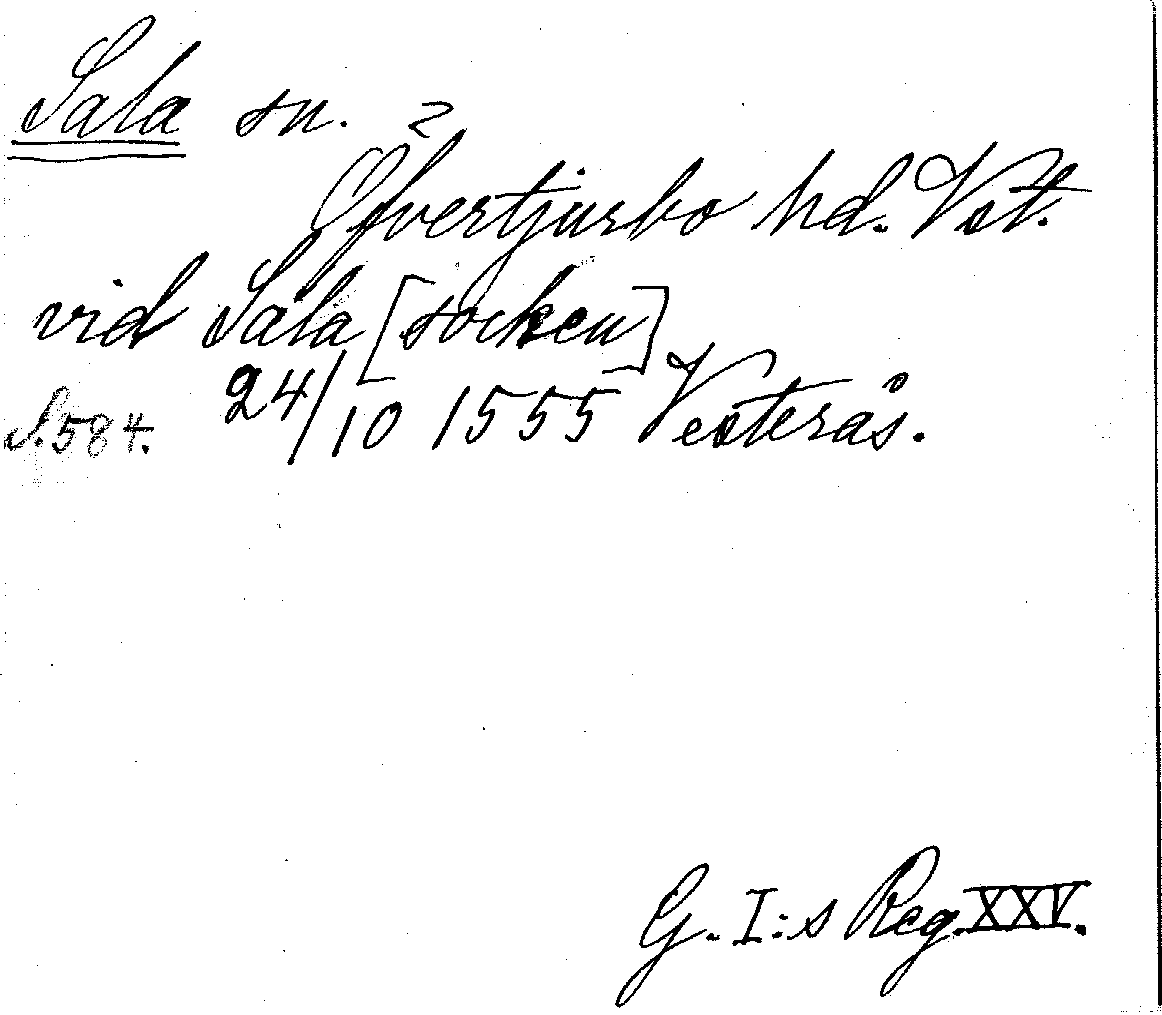 Sala sn.
Öfvertjurbo hd. Vst.
vid Sala [socken]
S. 584. 24/10 1555 Vesterås.
G. I:s Reg. XXV.